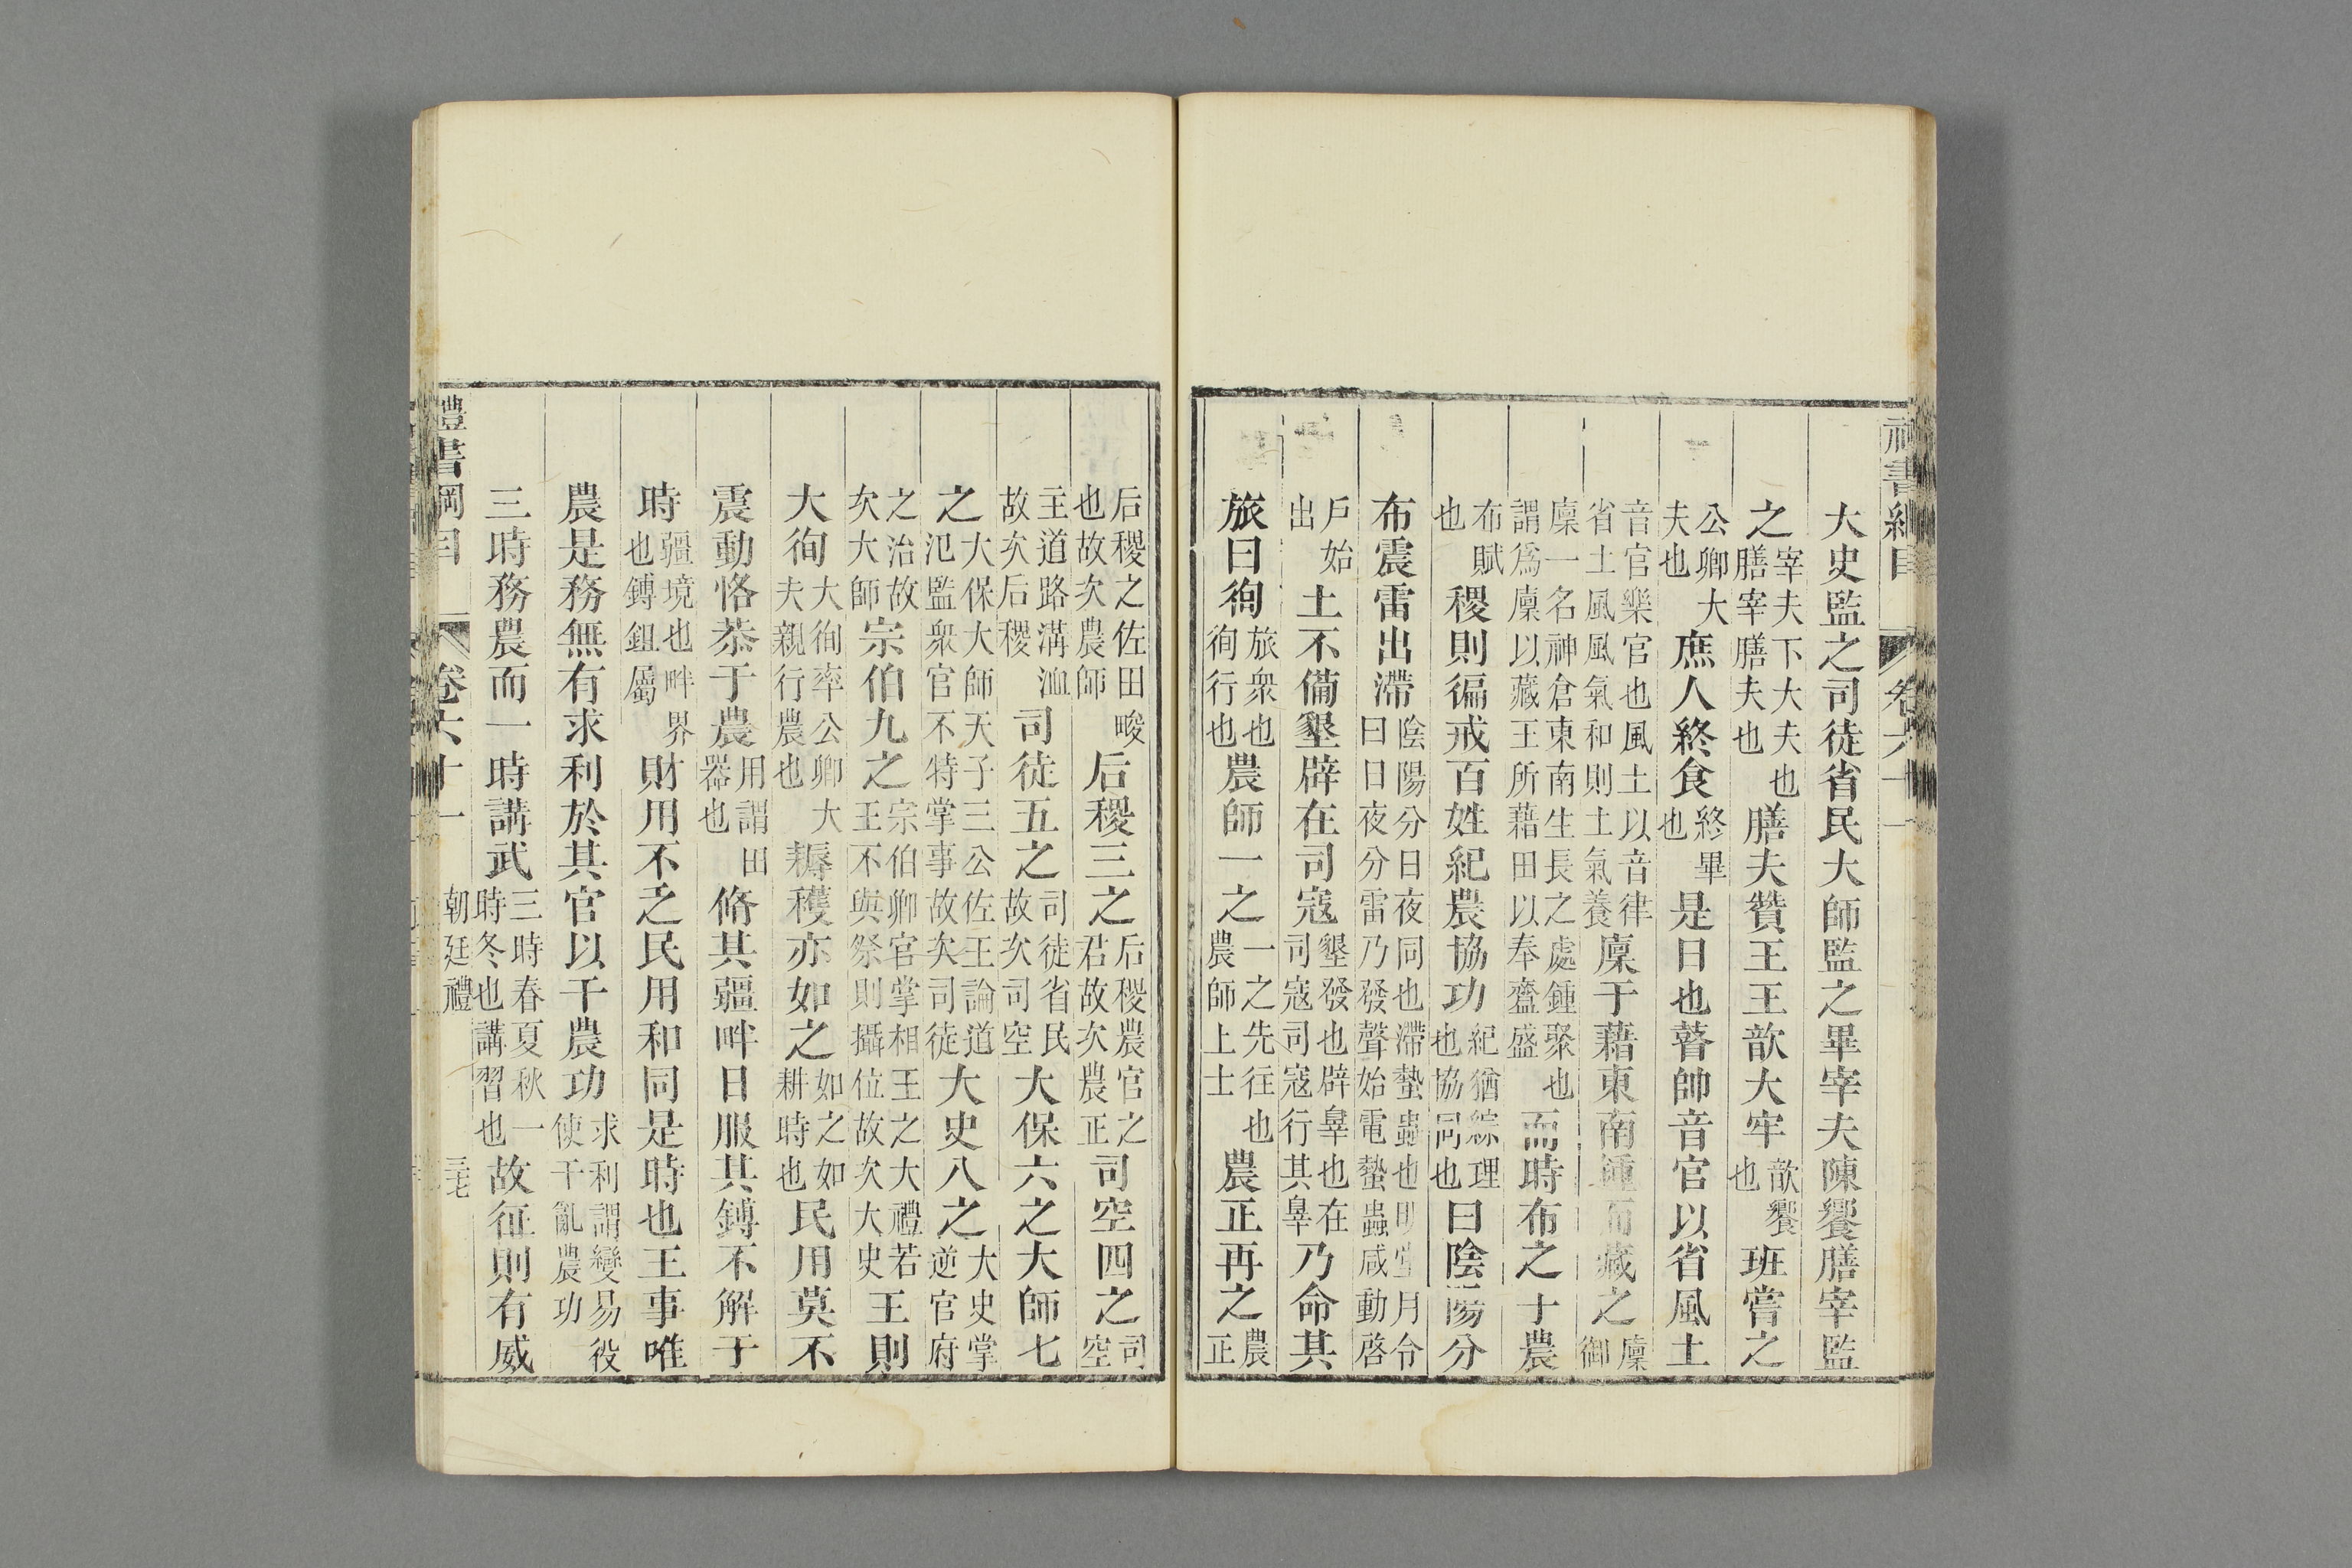 禮書綱目 卷六十一
大史監之司徒省民大師監之畢宰夫陳饗膳宰監
之宰夫下大夫也膳宰膳夫也膳夫贊王王歆大牢歆饗也班嘗之
公卿大夫也庶人終食終畢也是日也瞽帥音官以省風土
音官樂官也風土以音律省土風風氣和則土氣養廩于藉東南鍾而藏之廩御
廩一名神倉東南生長之處鍾聚也謂爲廩以藏王所藉田以奉齍盛而時布之于農
布賦也稷則徧戒百姓紀農協功紀猶綜理也協同也曰陰陽分
布震雷出滯陰陽分日夜同也滯蟄蟲也明堂月令曰日夜分雷乃發聲始電蟄蟲咸動啓
戶始出土不備墾辟在司寇墾發也辟辠也在司寇司寇行其辠乃命其
旅曰徇旅衆也徇行也農師一之一之先往也農師上士農正再之農正
后稷之佐田畯也故次農師后稷三之后稷農官之君故次農正司空四之司空
主道路溝洫故次后稷司徒五之司徒省民故次司空大保六之大師七
之大保大師天子三公佐王論道氾監衆官不特掌事故次司徒大史八之大史掌逆官府
之治故次大師宗伯九之宗伯卿官掌相王之大禮若王不與祭則攝位故次大史王則
大徇大徇率公卿大夫親行農也耨穫亦如之如之如耕時也民用莫不
震動恪恭于農用謂田器也脩其疆畔日服其鎛不解于
時疆境也畔界也鎛鉏屬財用不乏民用和同是時也王事唯
農是務無有求利於其官以干農功求利謂變易役使干亂農功
三時務農而一時講武三時春夏秋一時冬也講習也故征則有威
禮書綱目 卷六十一 朝廷禮 三七